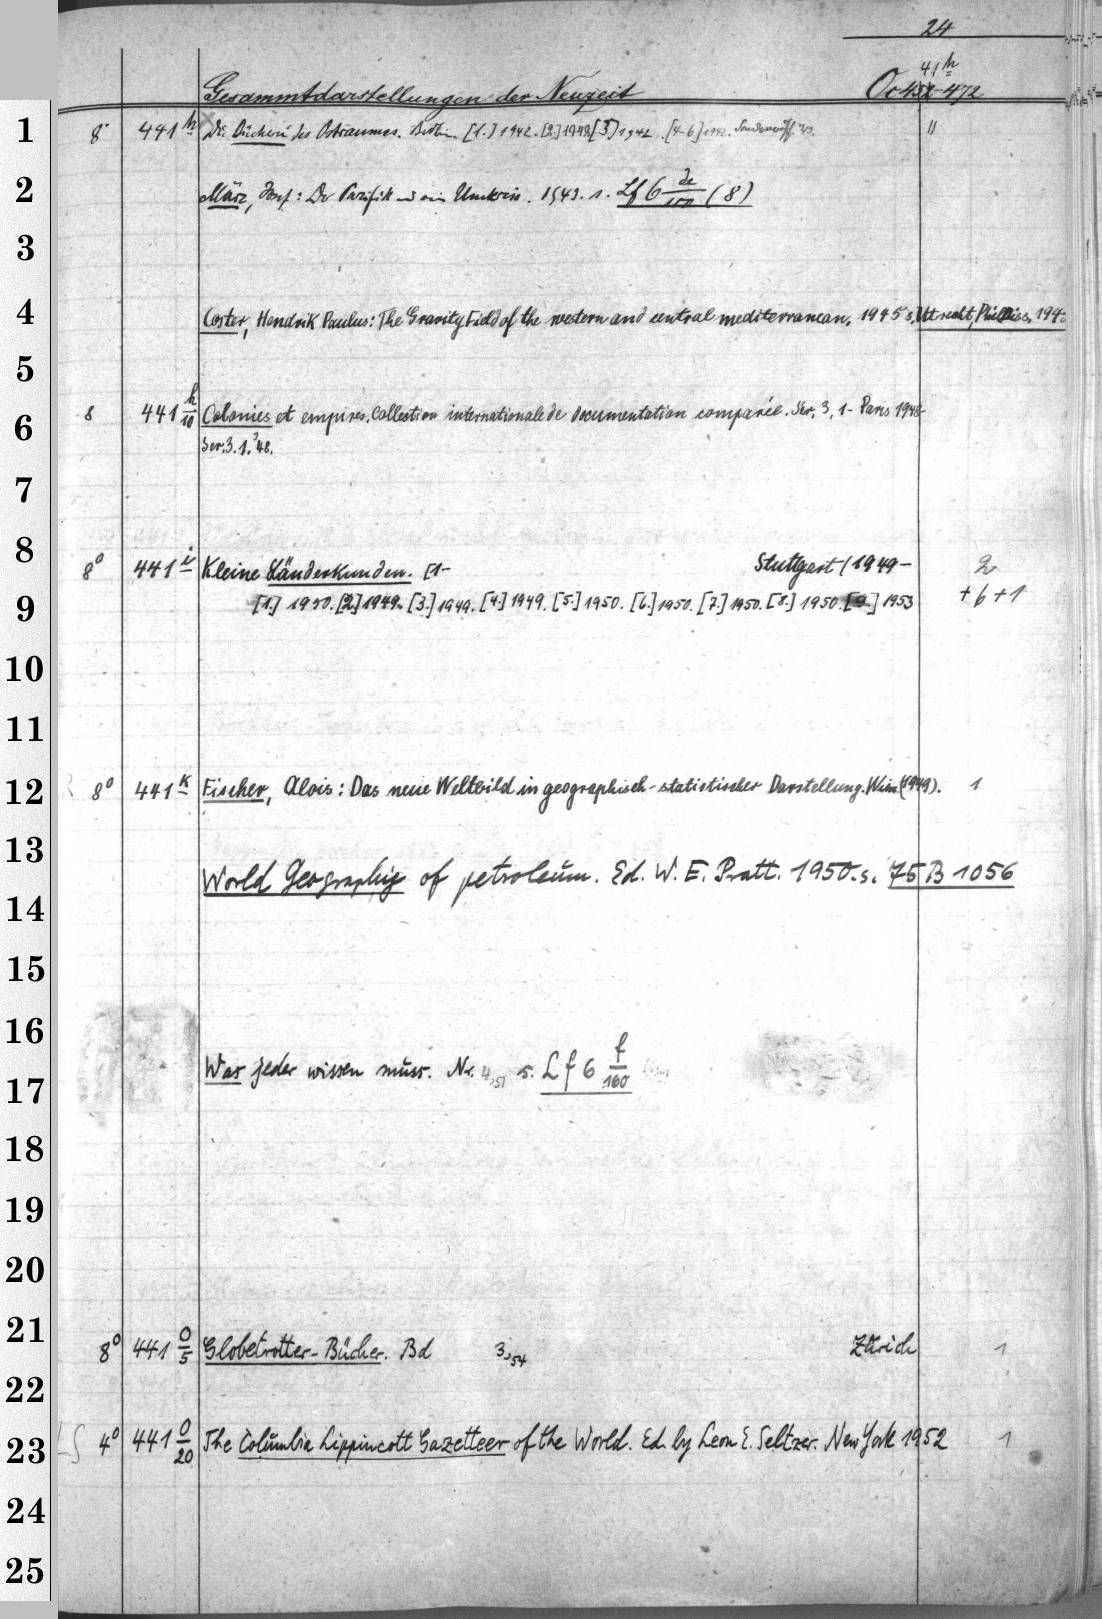 24
41 h
Gesammtdarstellungen der Neuzeit Oct 472
1 8° 441 h Die Bücherei des Ostraumes. Berlin [1.] 1942. [2.] 1942 [3] 1942. [4-6] 1942. "
2 März, Josef: Der Pazifik und sein Umkreis. 1943. s. Lf 6 de/100 (8)
3
4 Coster, Hendrik Paulus: The Gravity Field of the western and central mediterranean. 1945 s. Utrecht, Phil. Diss. 194
5
6 8 441 h/10 Colonies et empires. Collection internationale de documentation comparée. Ser. 3, 1- Paris 1948-
Ser. 3. 1. '48.
7
8 8° 441 i Kleine Länderkunden. [1- Stuttgart (1949- 2
9 [1.] 1950. [2.] 1949. [3.] 1949. [4.] 1949. [5.] 1950. [6.] 1950. [7.] 1950. [8.] 1950. [9.] 1953 +6+1
10
11
12 8° 441 k Fischer, Alois: Das neue Weltbild in geographisch-statistischer Darstellung. Wien (1949). 1
13
World Geography of petroleum. Ed. W. E. Pratt. 1950. s. 75 B 1056
14
15
16
17 Was jeder wissen muss. Nr. 4,51 s. Lf 6 f/160
18
19
20
21 8° 441 o/5 Globetrotter-Bücher. Bd 3,54 Zürich 1
22
23 4° 441 o/20 The Columbia Lippincott Gazetteer of the World. Ed. by Leon E. Seltzer. New York 1952 1
24
25